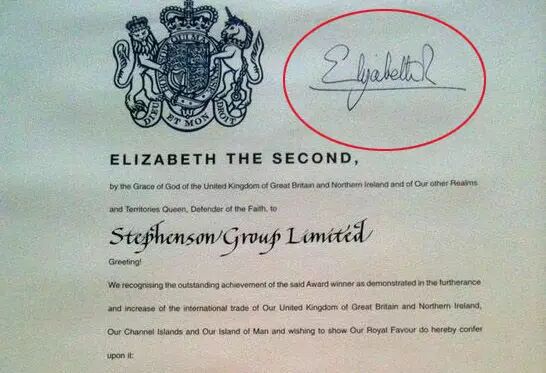 Elizabeth R
DIEU ET MON DROIT
ELIZABETH THE SECOND,
by the Grace of God of the United Kingdom of Great Britain and Northern Ireland and of Our other Realms
and Territories Queen, Defender of the Faith, to
Stephenson Group Limited
Greeting!
We recognising the outstanding achievement of the said Award winner as demonstrated in the furtherance
and increase of the international trade of Our United Kingdom of Great Britain and Northern Ireland,
Our Channel Islands and Our Island of Man and wishing to show Our Royal Favour do hereby confer
upon it: